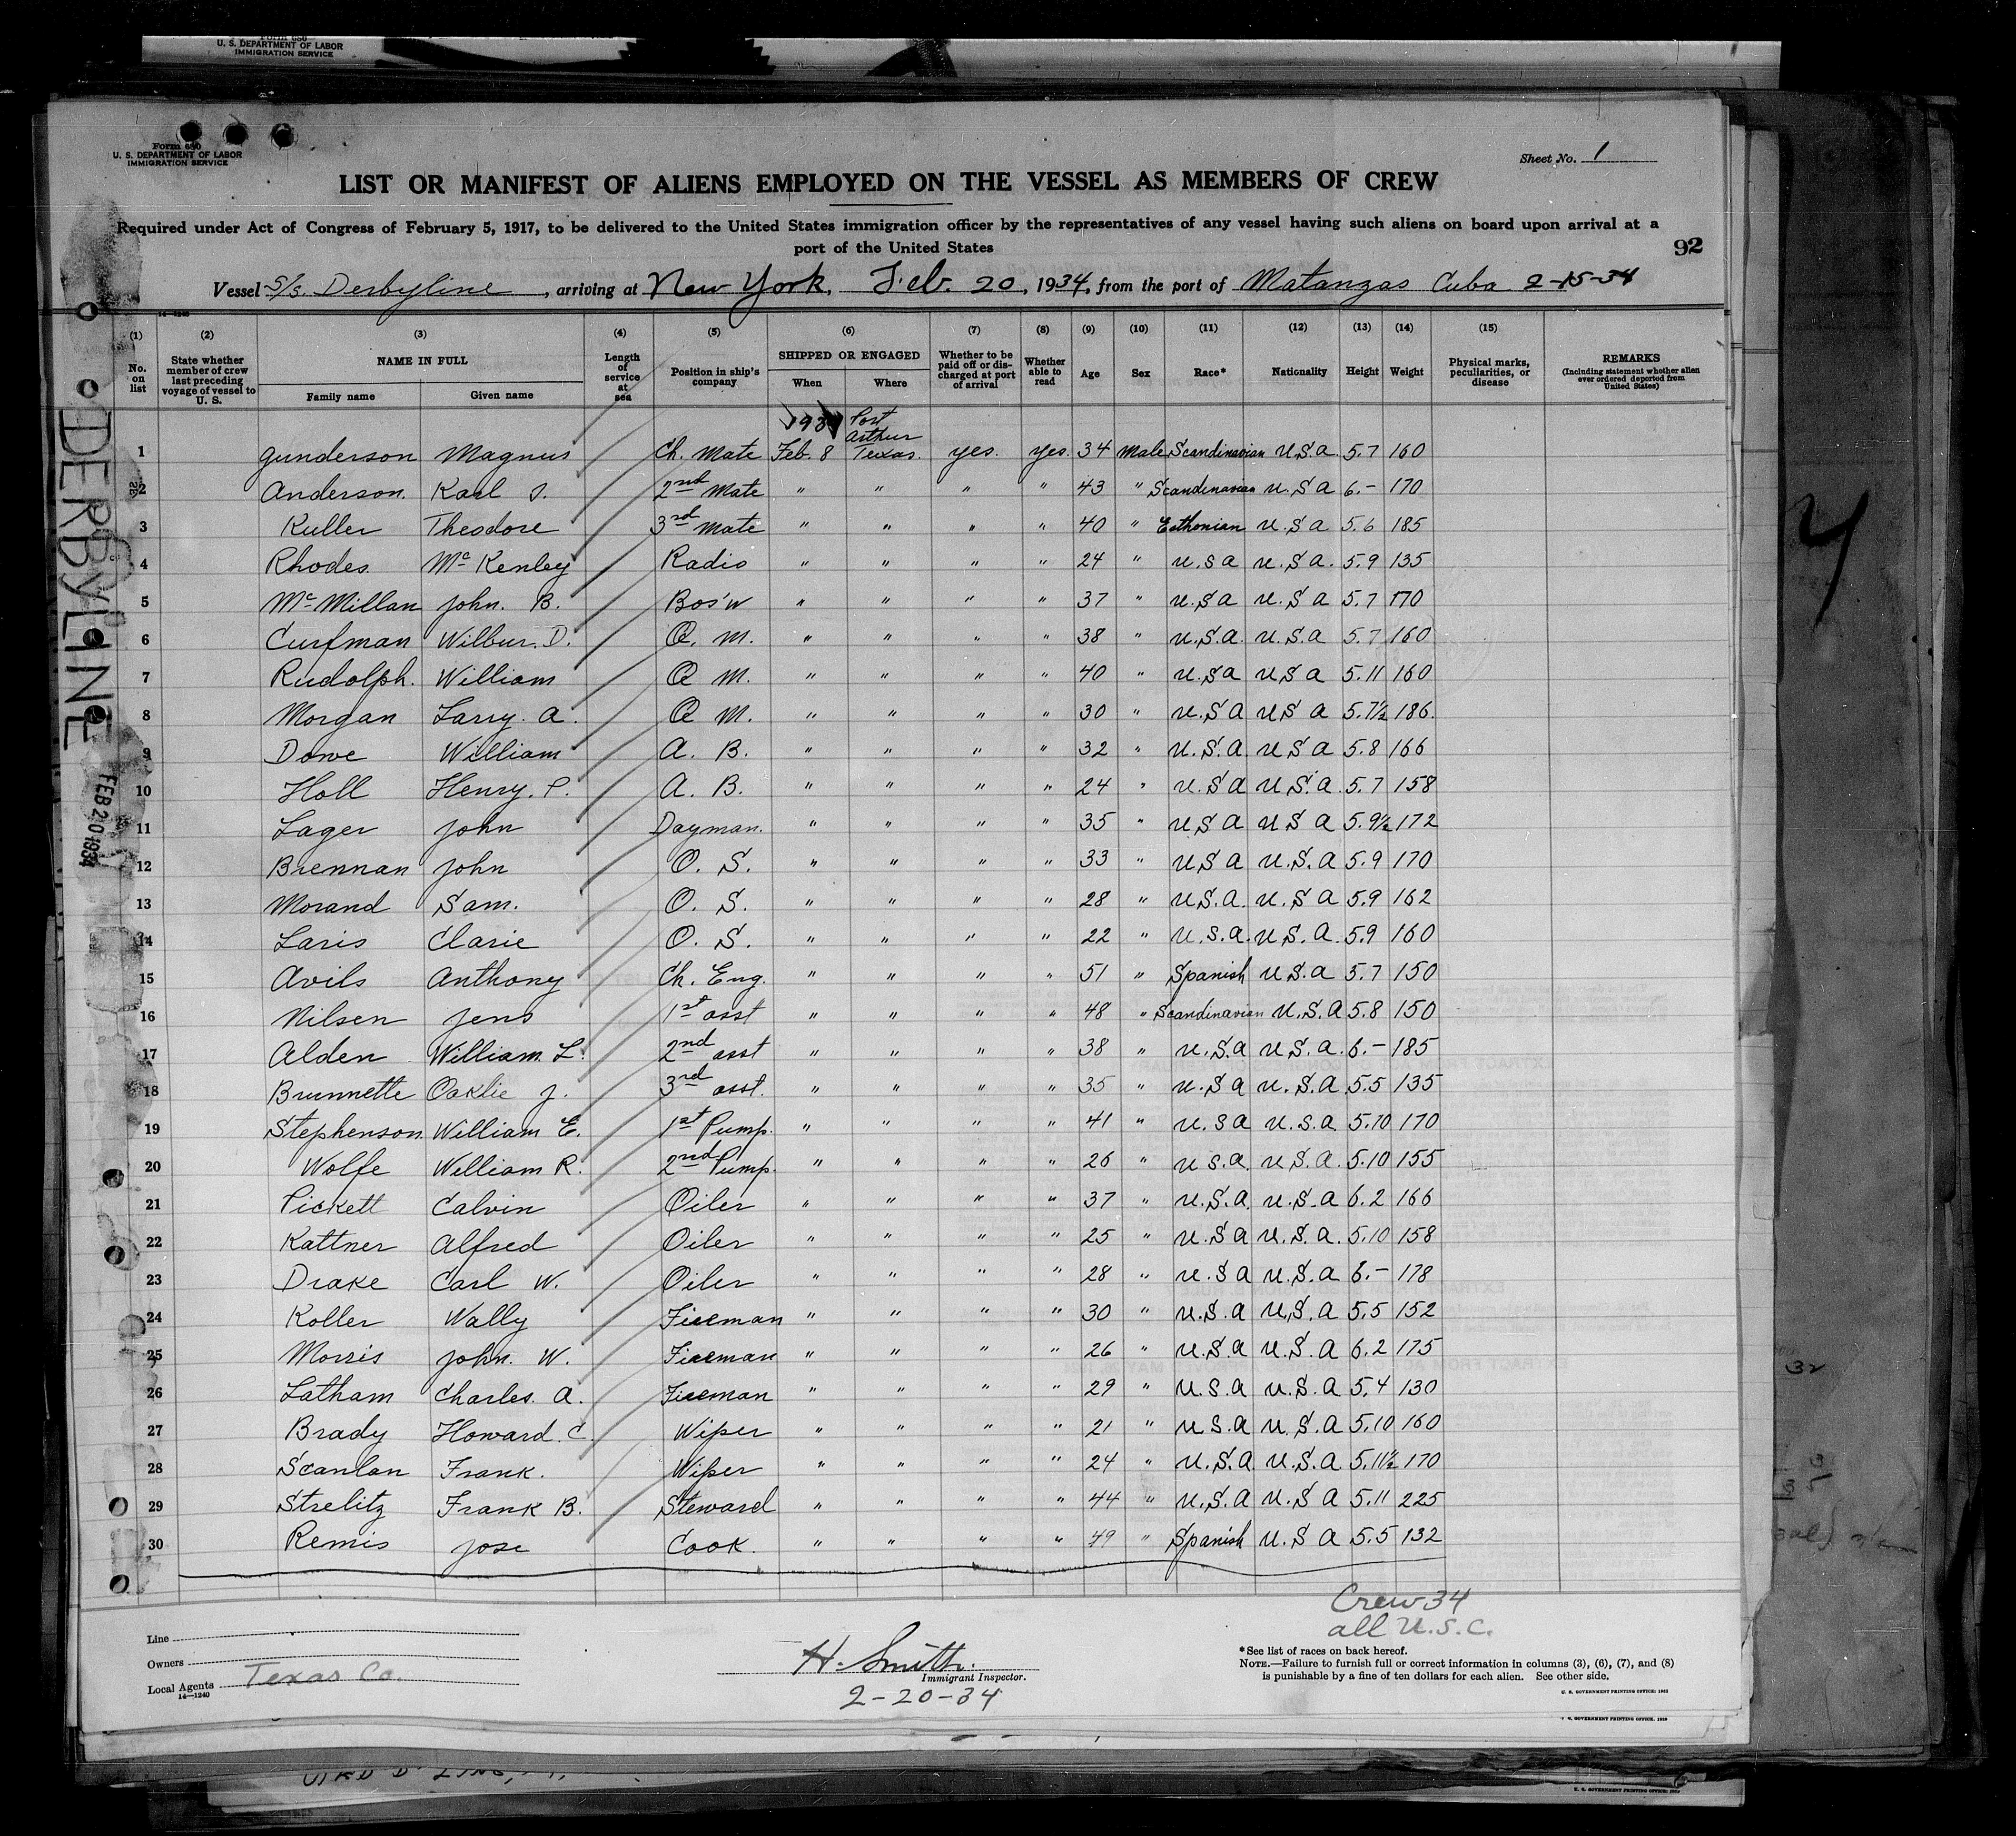 Form 680
U. S. DEPARTMENT OF LABOR
IMMIGRATION SERVICE
Form 680
U. S. DEPARTMENT OF LABOR
IMMIGRATION SERVICE
Sheet No. 1
LIST OR MANIFEST OF ALIENS EMPLOYED ON THE VESSEL AS MEMBERS OF CREW
Required under Act of Congress of February 5, 1917, to be delivered to the United States immigration officer by the representatives of any vessel having such aliens on board upon arrival at a
port of the United States
92
Vessel S/s. Derbyline, arriving at New York, Feb. 20, 1934, from the port of Matanzas Cuba 2-15-34
14-1240
(1) (2) (3) (4) (5) (6) (7) (8) (9) (10) (11) (12) (13) (14) (15)
No. on list
State whether member of crew last preceding voyage of vessel to U. S.
NAME IN FULL
Family name Given name
Length of service at sea
Position in ship's company
SHIPPED OR ENGAGED
When Where
Whether to be paid off or discharged at port of arrival
Whether able to read
Age Sex Race* Nationality Height Weight
Physical marks, peculiarities, or disease
REMARKS
(Including statement whether alien ever ordered deported from United States)
1934 Port Arthur
1 Gunderson Magnus Ch. Mate Feb. 8 Texas. yes. yes. 34 Male Scandinavian U.S.A. 5.7 160
2 Anderson. Karl S. 2nd Mate " " " " 43 " Scandinavian U.S.A 6.- 170
3 Kuller Theodore 3rd Mate " " " " 40 " Esthonian U.S.A 5.6 185
4 Rhodes. McKenley Radio " " " " 24 " U.S.A U.S.A. 5.9 135
5 McMillan John. B. Bos'n " " " " 37 " U.S.A U.S.A 5.7 170
6 Curfman Wilbur. D. Q. M. " " " " 38 " U.S.A. U.S.A 5.7 160
7 Rudolph. William Q M. " " " " 40 " U.S.A U S A 5.11 160
8 Morgan Larry. A. Q M. " " " " 30 " U.S.A U S A 5.7½ 186.
9 Dowe William A. B. " " " " 32 " U.S.A. U S A 5.8 166
10 Holl Henry. P. A. B. " " " " 24 " U.S.A U.S.A. 5.7 158
11 Lager John Dayman. " " " " 35 " U S A U S A 5.9½ 172
12 Brennan John O. S. " " " " 33 " U S A U.S.A 5.9 170
13 Morand Sam. O. S. " " " " 28 " U.S.A. U.S.A 5.9 162
14 Laris Clarie O. S. " " " " 22 " U.S.A. U S.A. 5.9 160
15 Avils Anthony Ch. Eng. " " " " 51 " Spanish U.S.A 5.7 150
16 Nilsen Jens 1st asst " " " " 48 " Scandinavian U.S.A 5.8 150
17 Alden William. L. 2nd asst " " " " 38 " U.S.A U.S.A. 6.- 185
18 Brunnette Oaklie J. 3rd asst. " " " " 35 " U.S.A U.S.A. 5.5 135
19 Stephenson. William E. 1st Pump. " " " " 41 " U.S.A U.S.A. 5.10 170
20 Wolfe William R. 2nd Pump. " " " " 26 " U S.A. U.S.A. 5.10 155
21 Pickett Calvin Oiler " " " " 37 " U.S.A. U.S.A 6.2 166
22 Kattner Alfred Oiler " " " " 25 " U.S.A U.S.A. 5.10 158
23 Drake Carl W. Oiler " " " " 28 " U.S.A U.S.A 6.- 178
24 Koller Wally Fireman " " " " 30 " U.S.A U.S.A 5.5 152
25 Morris John. W. Fireman " " " " 26 " U.S.A U.S.A 6.2 175
26 Latham Charles. A. Fireman " " " " 29 " U.S.A U.S.A 5.4 130
27 Brady Howard. C. Wiper " " " " 21 " U S.A U.S.A 5.10 160
28 Scanlan Frank. Wiper " " " " 24 " U.S.A U.S.A. 5.11½ 170
29 Strelitz Frank B. Steward " " " " 44 " U.S.A U.S.A 5.11 225
30 Remis Jose Cook. " " " " 49 " Spanish U.S A 5.5 132
Crew 34
all U.S.C.
Line
Owners
Local Agents Texas Co.
14-1240
H. Smith.
Immigrant Inspector.
2-20-34
* See list of races on back hereof.
NOTE.—Failure to furnish full or correct information in columns (3), (6), (7), and (8)
is punishable by a fine of ten dollars for each alien. See other side.
U. S. GOVERNMENT PRINTING OFFICE: 1931
U. S. GOVERNMENT PRINTING OFFICE: 1929
DERBYLINE
FEB 20 1934
32